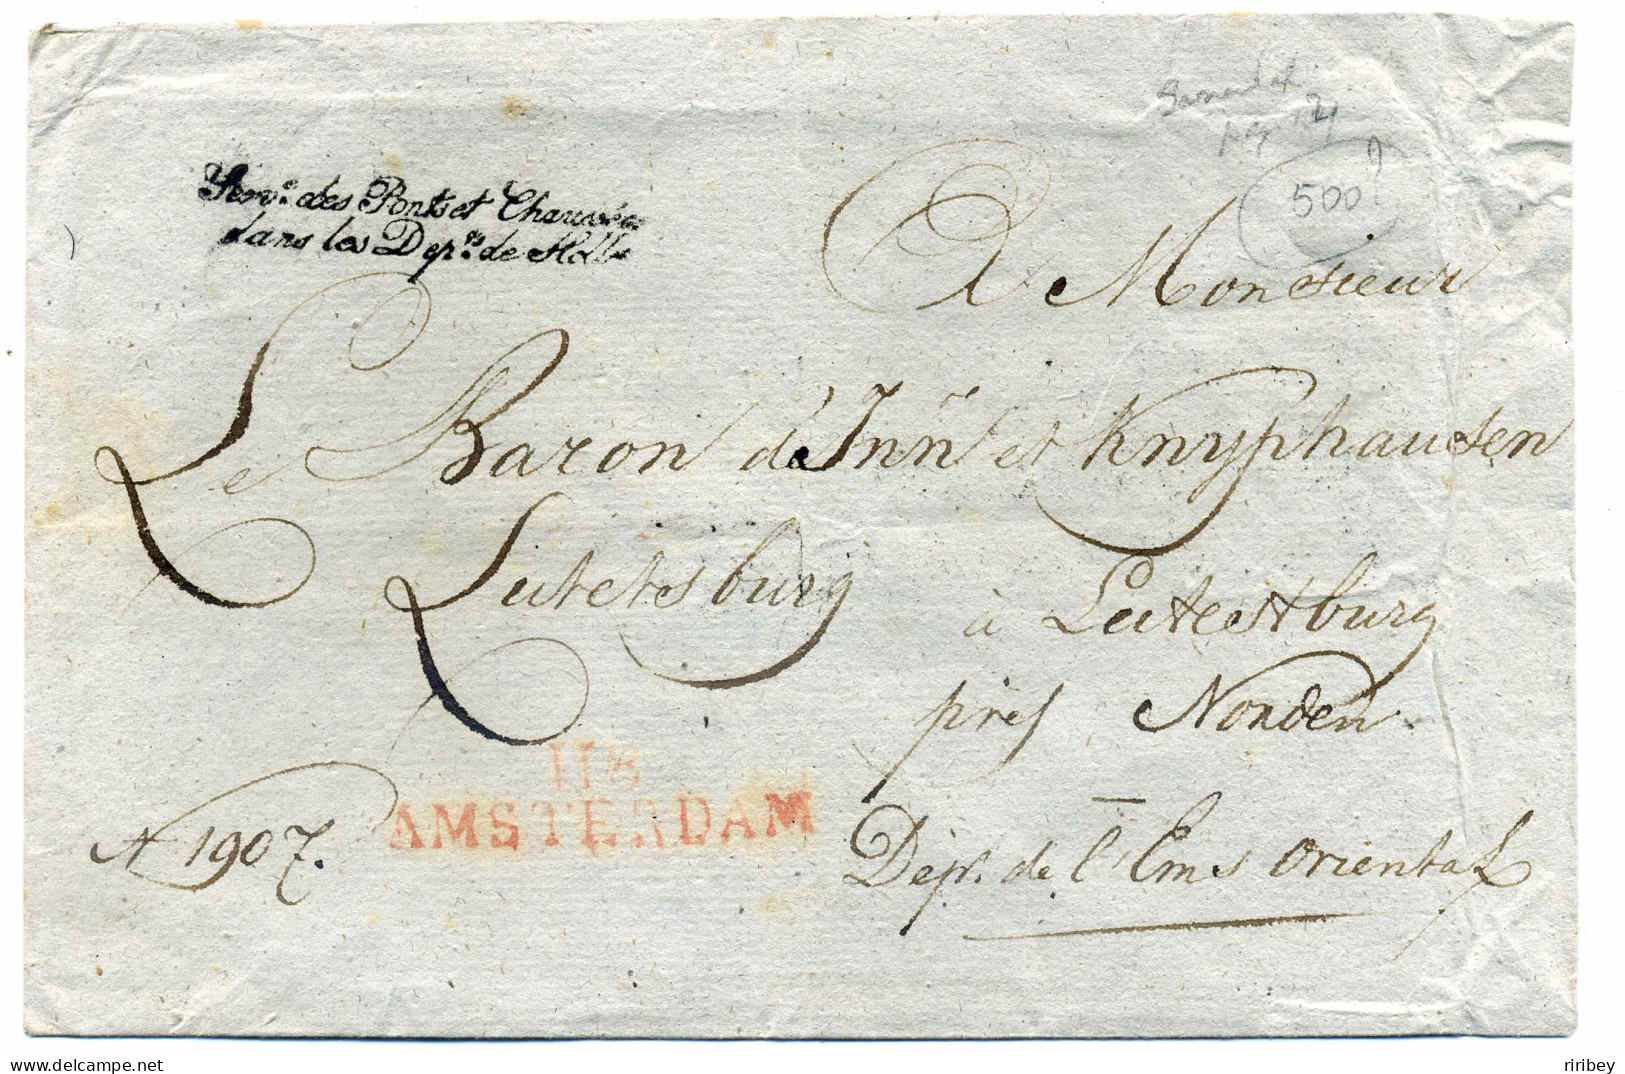 Serv.ce des Ponts et Chaussées
dans les Dep.ts de Holl.e
500?
A Monsieur
Le Baron d'Inn et Knyphausen
Lutetsburg
à Lutetsburg
près Norden
118
AMSTERDAM
N 1907.
Dep.t de l'Ems oriental
riribey